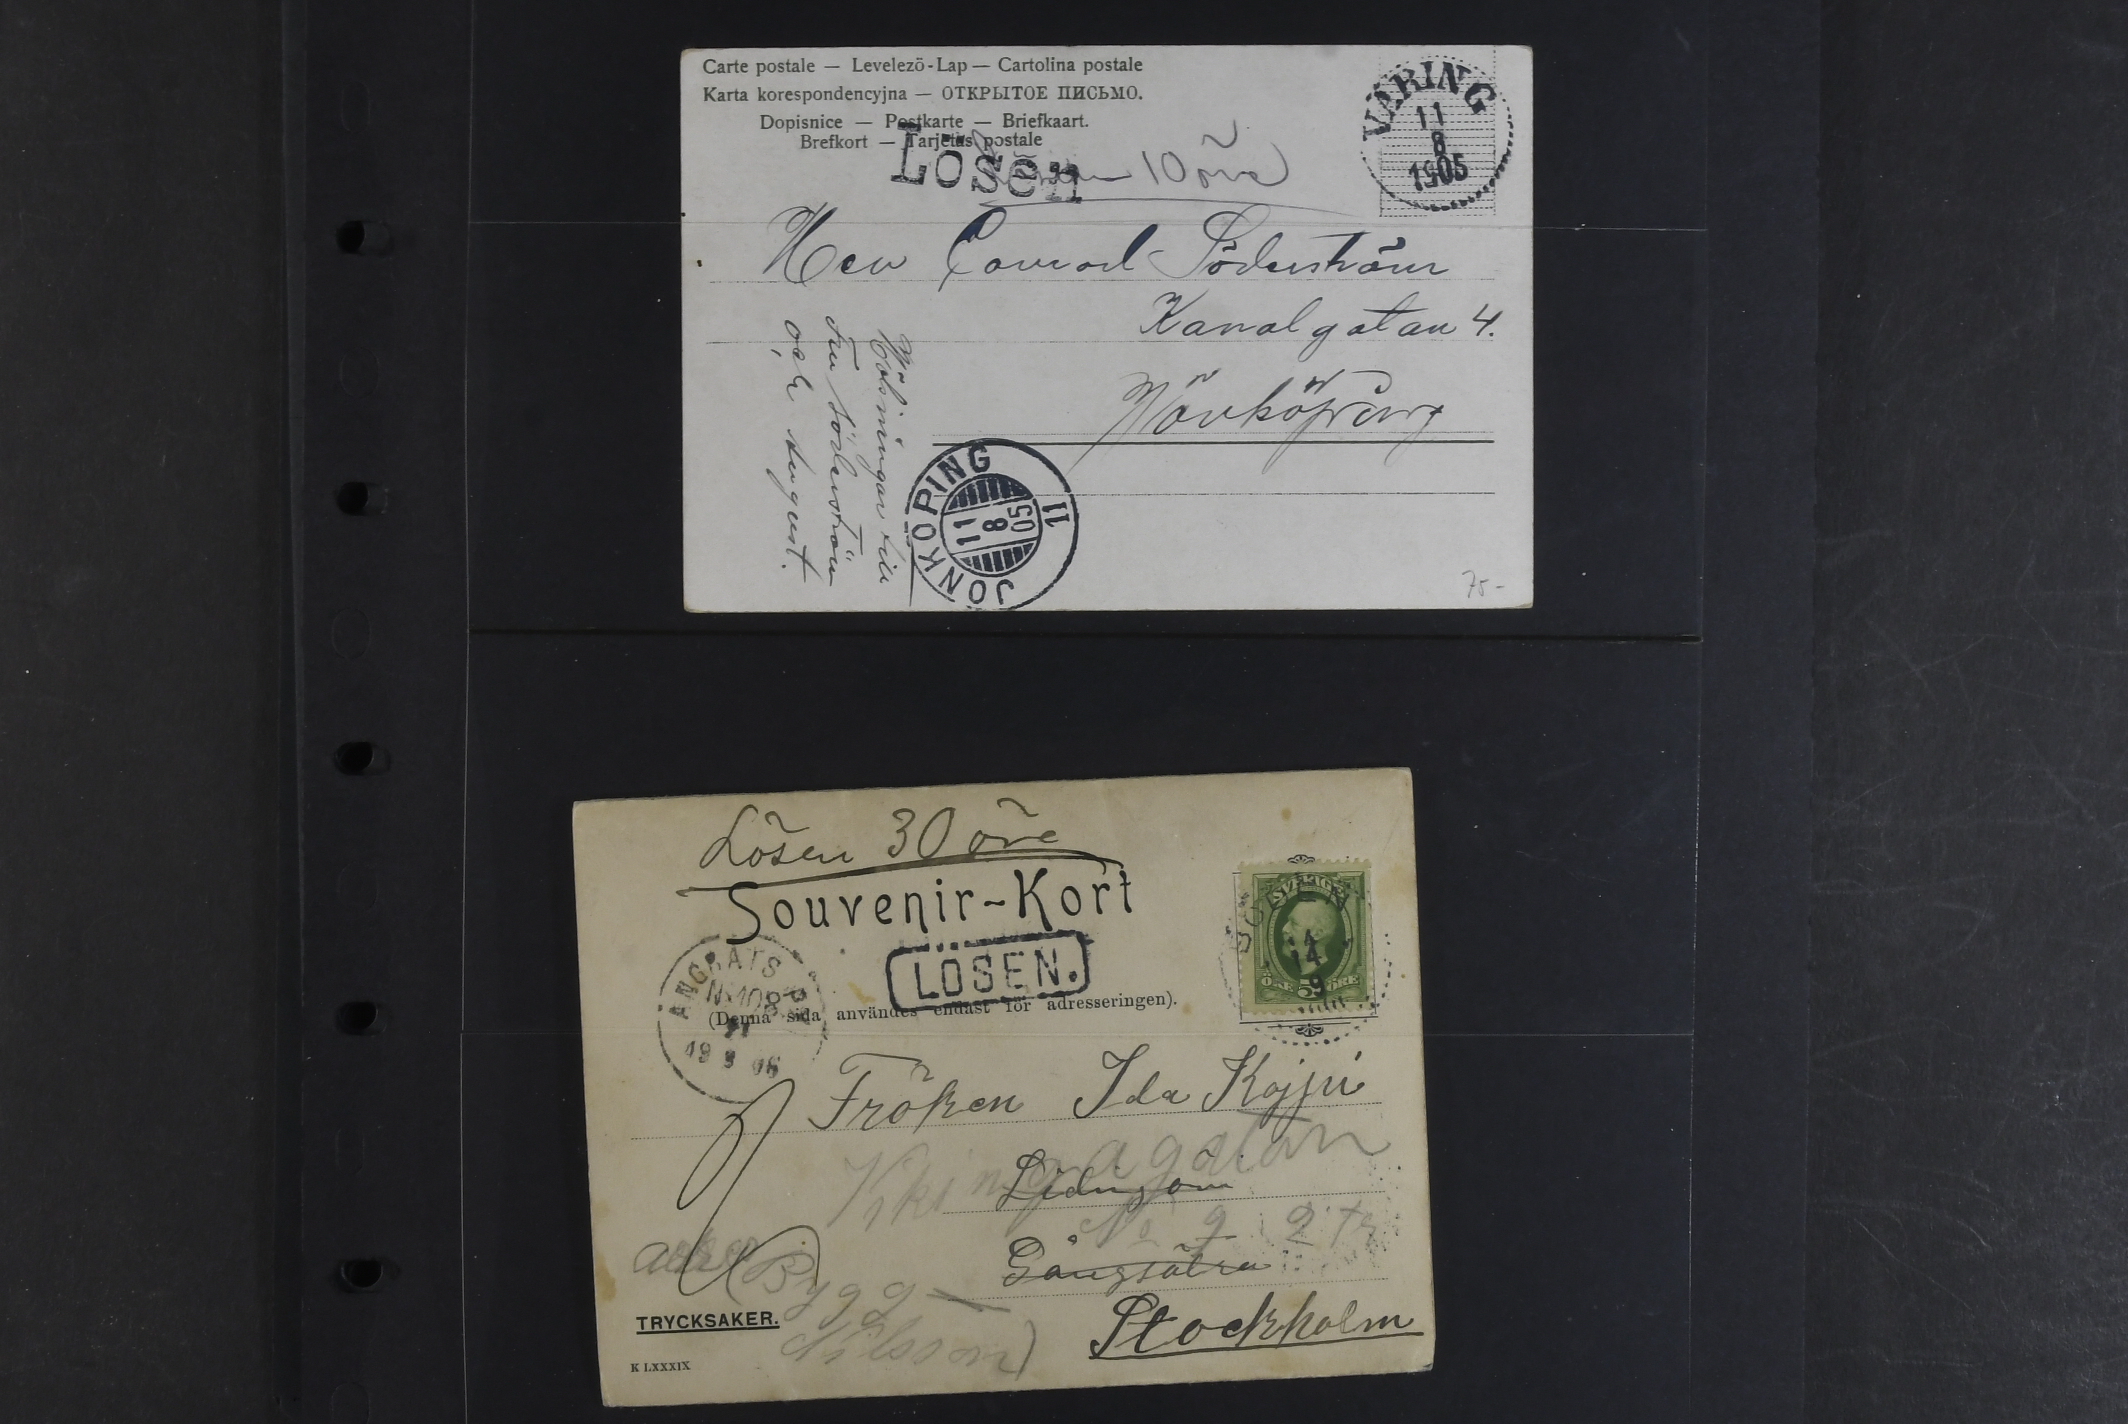 Carte postale — Levelező-Lap — Cartolina postale
Karta korespondencyjna — ОТКРЫТОЕ ПИСЬМО.
Dopisnice — Postkarte — Briefkaart.
Brefkort — Tarjetas postale
Lösen
10 öre
VÄRING
11
8
1905
Herr Conrad Söderström
Kanalgatan 4.
Jönköping
Helsningar till
Fru Söderström
och August.
JÖNKÖPING
11
8
05
11
75-
Lösen 30 öre
Souvenir-Kort
LÖSEN.
(Denna sida användes endast för adresseringen).
ÅNGBÅTS PXP
No 108
19 9 06
SVERIGE
ÖRE 5 ÖRE
14
9
Fröken Ida
Lidingön
No 9 2 tr
Gångsätra
Bygg-
Nilsson)
Stockholm
TRYCKSAKER.
K LXXXIX